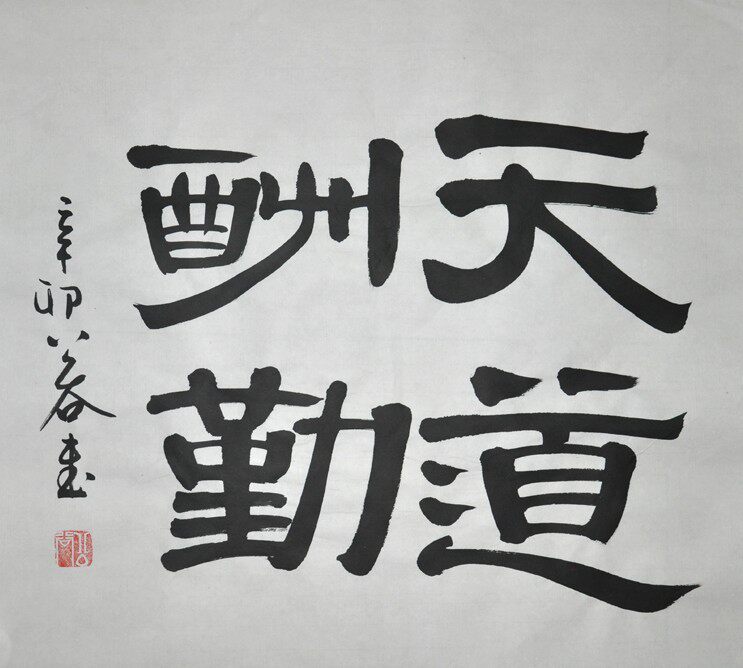 天道
酬勤
辛卯
書